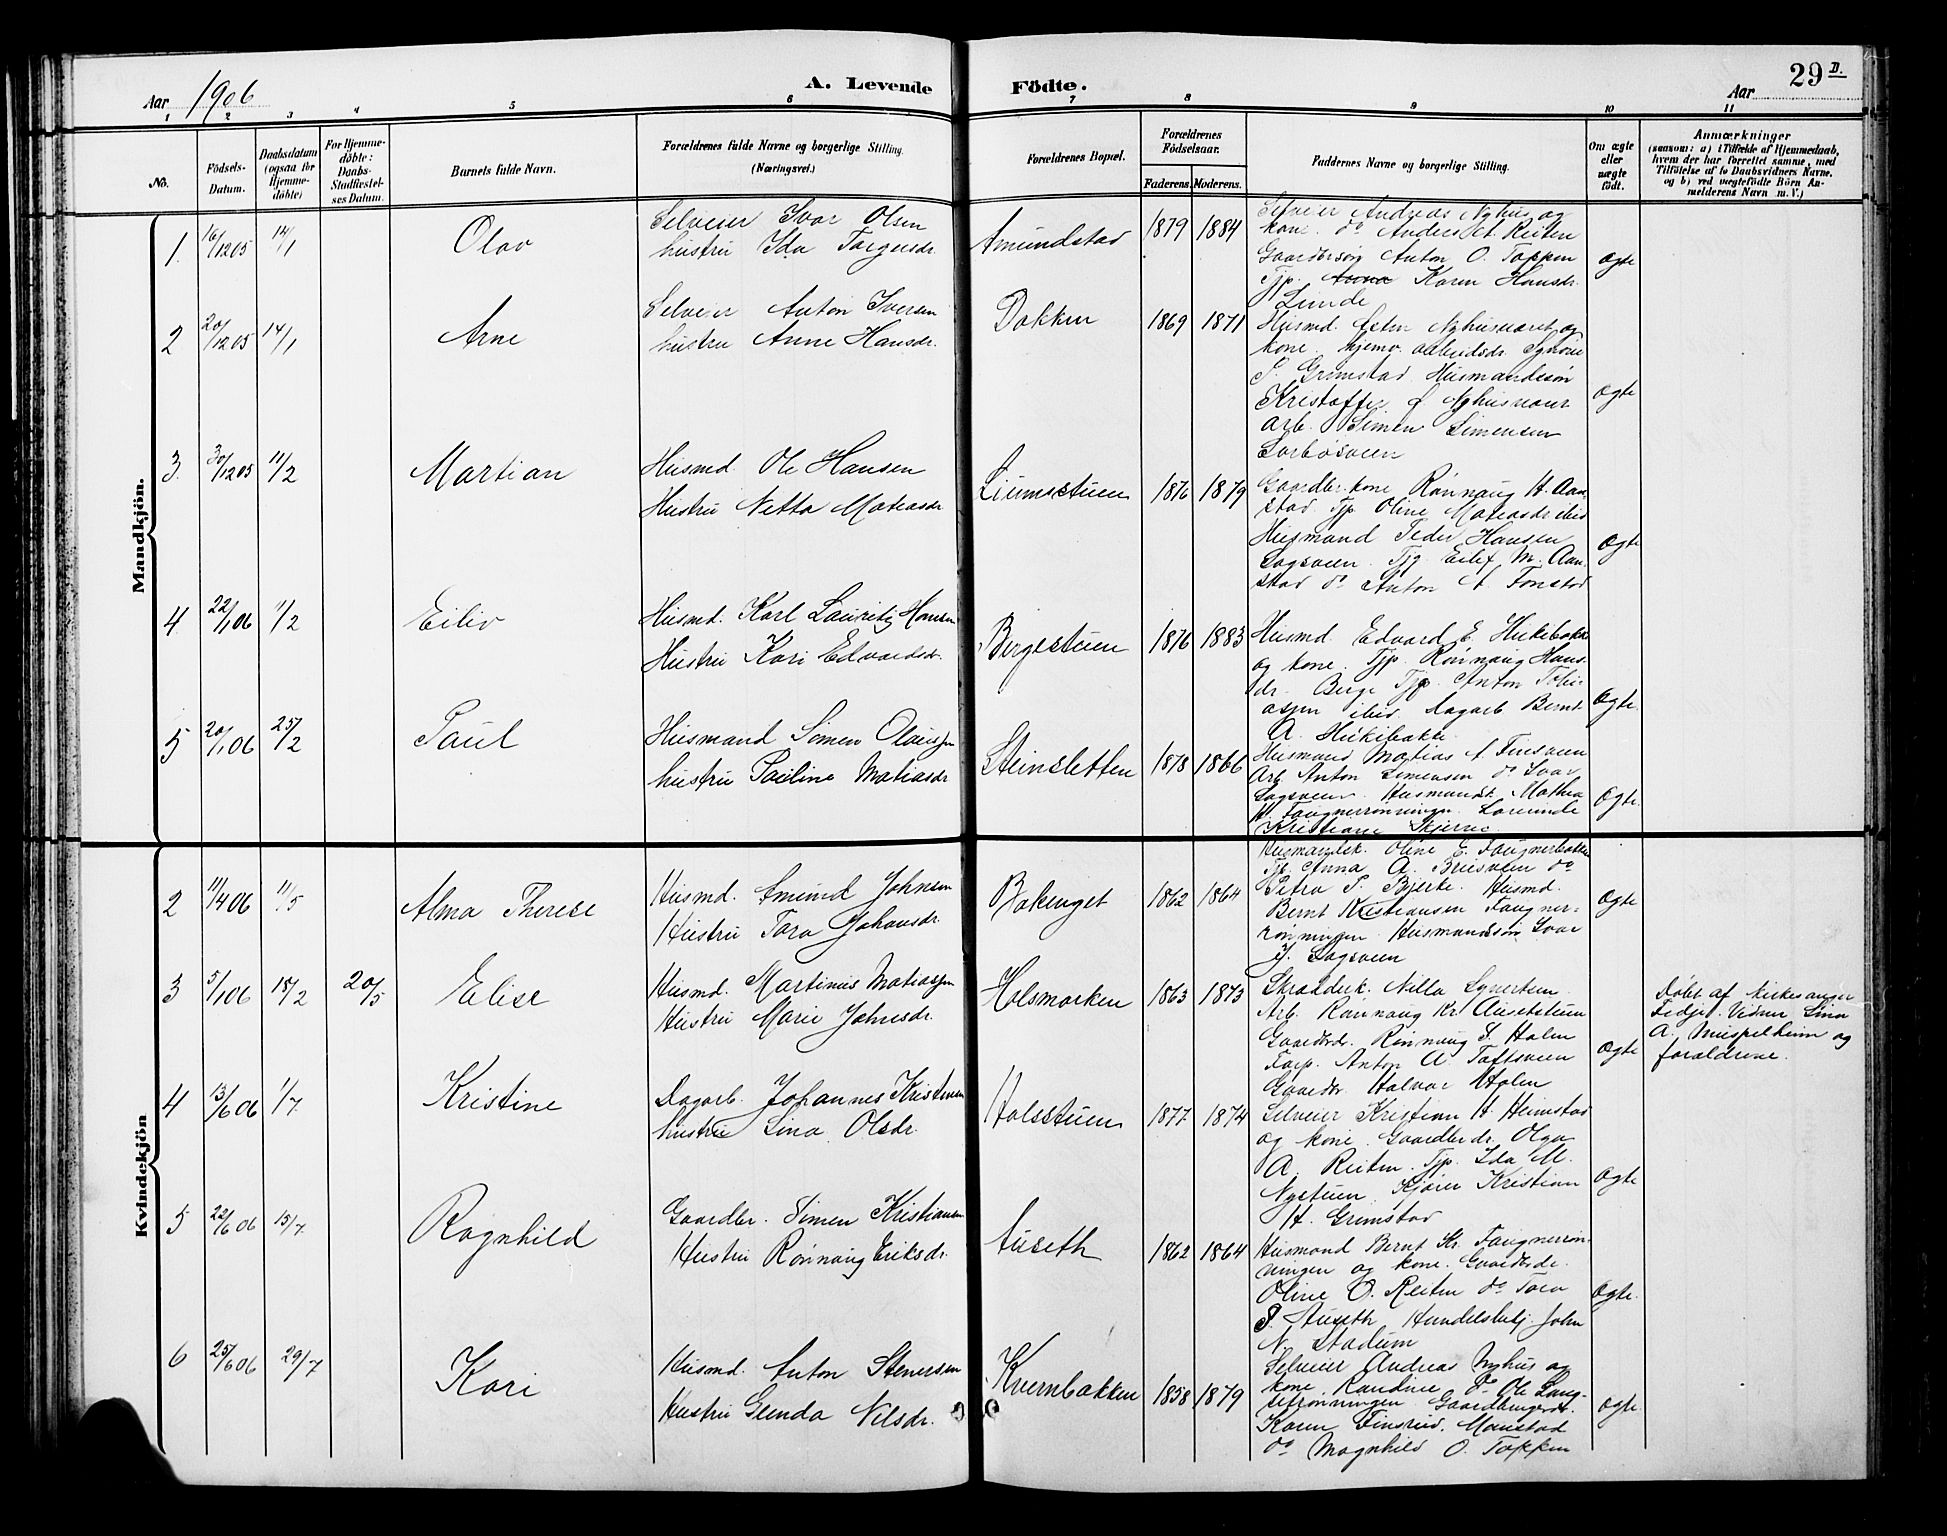 Aar 1906
A. Levende Födte.
Aar
29 D.
1 2 3 4 5 6 7 8 9 10 11
No.
Födsels-Datum.
Daabsdatum (ogsaa for Hjemme-döbte)
For Hjemme-döbte: Daabs-Stadfæstel-ses Datum.
Barnets fulde Navn.
Forældrenes fulde Navne og borgerlige Stilling. (Næringsvei.)
Forældrenes Bopæl.
Forældrenes Födselsaar.
Faderens. Moderens.
Faddernes Navne og borgerlige Stilling.
Om ægte eller uægte födt.
Anmærkninger
(saasom: a) i Tilfælde af Hjemmedaab,
hvem der har forrettet samme, med
Tilföielse af to Daabsvidners Navne.
og b) ved uægtefödte Börn An-
melderens Navn m. V.)
Mandkjön.
1. 16/12 05 14/1 Olav
Selveier Ivar Olsen
hustru Ida Torgersdr.
Amundstad 1879 1884
Selveier Andreas Nyhus og
kone. do Anders A. Reiten
Gaardbrsøn Anton O. Toppen
Tjp. Karen Hansdr.
Linde
Ægte
2 20/12 05 14/1 Arne
Selveier Anton Iversen
hustru Anne Hansdr.
Dokken 1869 1871
Husmd. Nyhusvaret og
kone. hjemv. arbeidsdr.
S. Grimstad Husmandssøn
Kristoffer
Arb. Simen Simensen
Sorbøsveen
Ægte
3. 30/12 05 11/2 Martian
Husmd. Ole Hansen
Hustru Netta Matiasdr
Liumsstuen 1876 1879
Gaardbr.kone Rønnaug H. Aan-
stad Tjp Oline Matiasdr ibid
Husmand Peder Hansen
Sagsveen. Tjg Eilif M. Aan-
stad do Anton A. Fonstad
Ægte
4 22/1 06 11/2 Eiliv
Husmd. Karl Lauritz Hansen
Hustru Kari Edvardsdr.
Bergestuen 1876 1883
Husmd. Edvard E. Hukibakke
og kone. Tjp. Rønnaug Hans-
dr. Berge Tjg. Anton Tobi-
assen ibid. Dagarb Bernt
A. Hukibakke
Ægte.
5 20/1 06 25/2 Paul
Husmand Simen Olaussen
hustru Pauline Matiasdr
Steinsletten 1878 1866
Husmand Matias A. Finsveen
Arb. Anton Simensen do Ivar
Sagsveen. Husmandsk. Mathea
Faugnerrønningen.
Kristiane
Ægte.
Kvindekjön
2 11/4 06 11/5 Alma Therese
Husmd. Amund Johnsen
Hustru Tora Johansdr.
Bakenget 1862 1864
Husmandsk. Oline E. Faugnerbakken
Tjp. Anna A. Brusveen do
Petra P. Bjerke. Husmd.
Bernt Kristiansen Faugner-
rønningen. Husmandssøn Ivar
J. Sagsveen
Ægte
3 5/1 06 18/2 20/5 Elise
Husmd. Martinus Matiassen
Hustru Marie Johnsdr.
Holsmarken 1863 1873
Skradderk. Nilla Syvertsen
Arb. Rønnaug Kr. Ausetstuen
Gaardbrdr. Rønnaug S. Holen
Forp. Anton A. Toftsveen
Gaardbr. Halvor Holen
Ægte
Døbt af kirkesanger
Fedje. Vidner Lina
A. Muspelheim og
forældrene.
4 13/6 06 1/7 Kristine
Dagarb. Johannes Kristensen
hustru Lina Olsdr.
Holsstuen 1877 1874
Selveier Kristian H. Heimstad
og kone. Gaardbrdr. Olga
A. Reiten. Tjp. Ida M.
Nystuen. Kjører Kristian
H. Grimstad
Ægte
5 22/6 06 15/7 Ragnhild
Gaardbr. Simen Kristiansen
Hustru Rønnaug Eriksdr.
Auseth 1862 1864
Husmand Bernt Kr. Faugnerrøn-
ningen og kone. Gaardbrdr.
Oline O. Reiten do Tora
S. Auseth Handelsbetj. John
N. Stadum
Ægte.
6 25/6 06 29/7 Kari
Husmd. Anton Stenersen
Hustru Gunda Nilsdr.
Kvernbakken 1858 1879
Selveier Andreas Nyhus og
kone. Randine do Ole Lang-
setrønningen. Gaardbrugerdtr.
Karen Finsrud, Maustad
do Magnhild O. Toppen
Ægte.